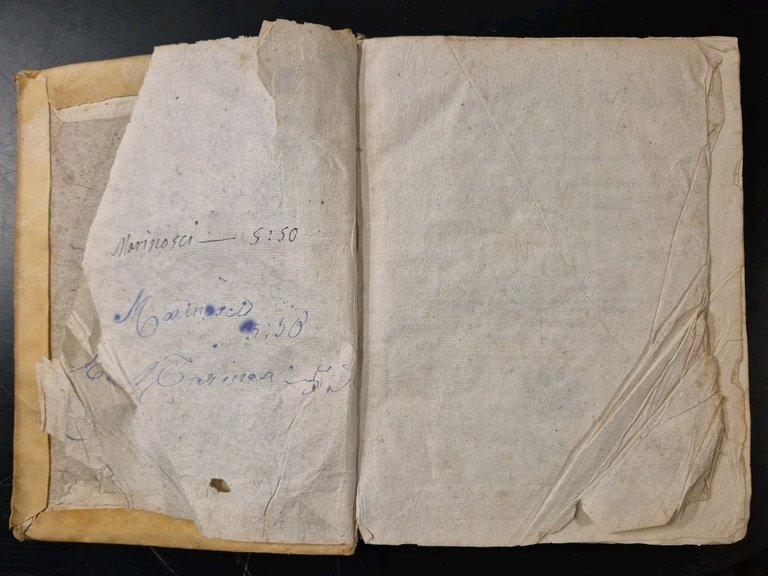 Marinosci — 5:50
Marinosci
5:50
Marinosci